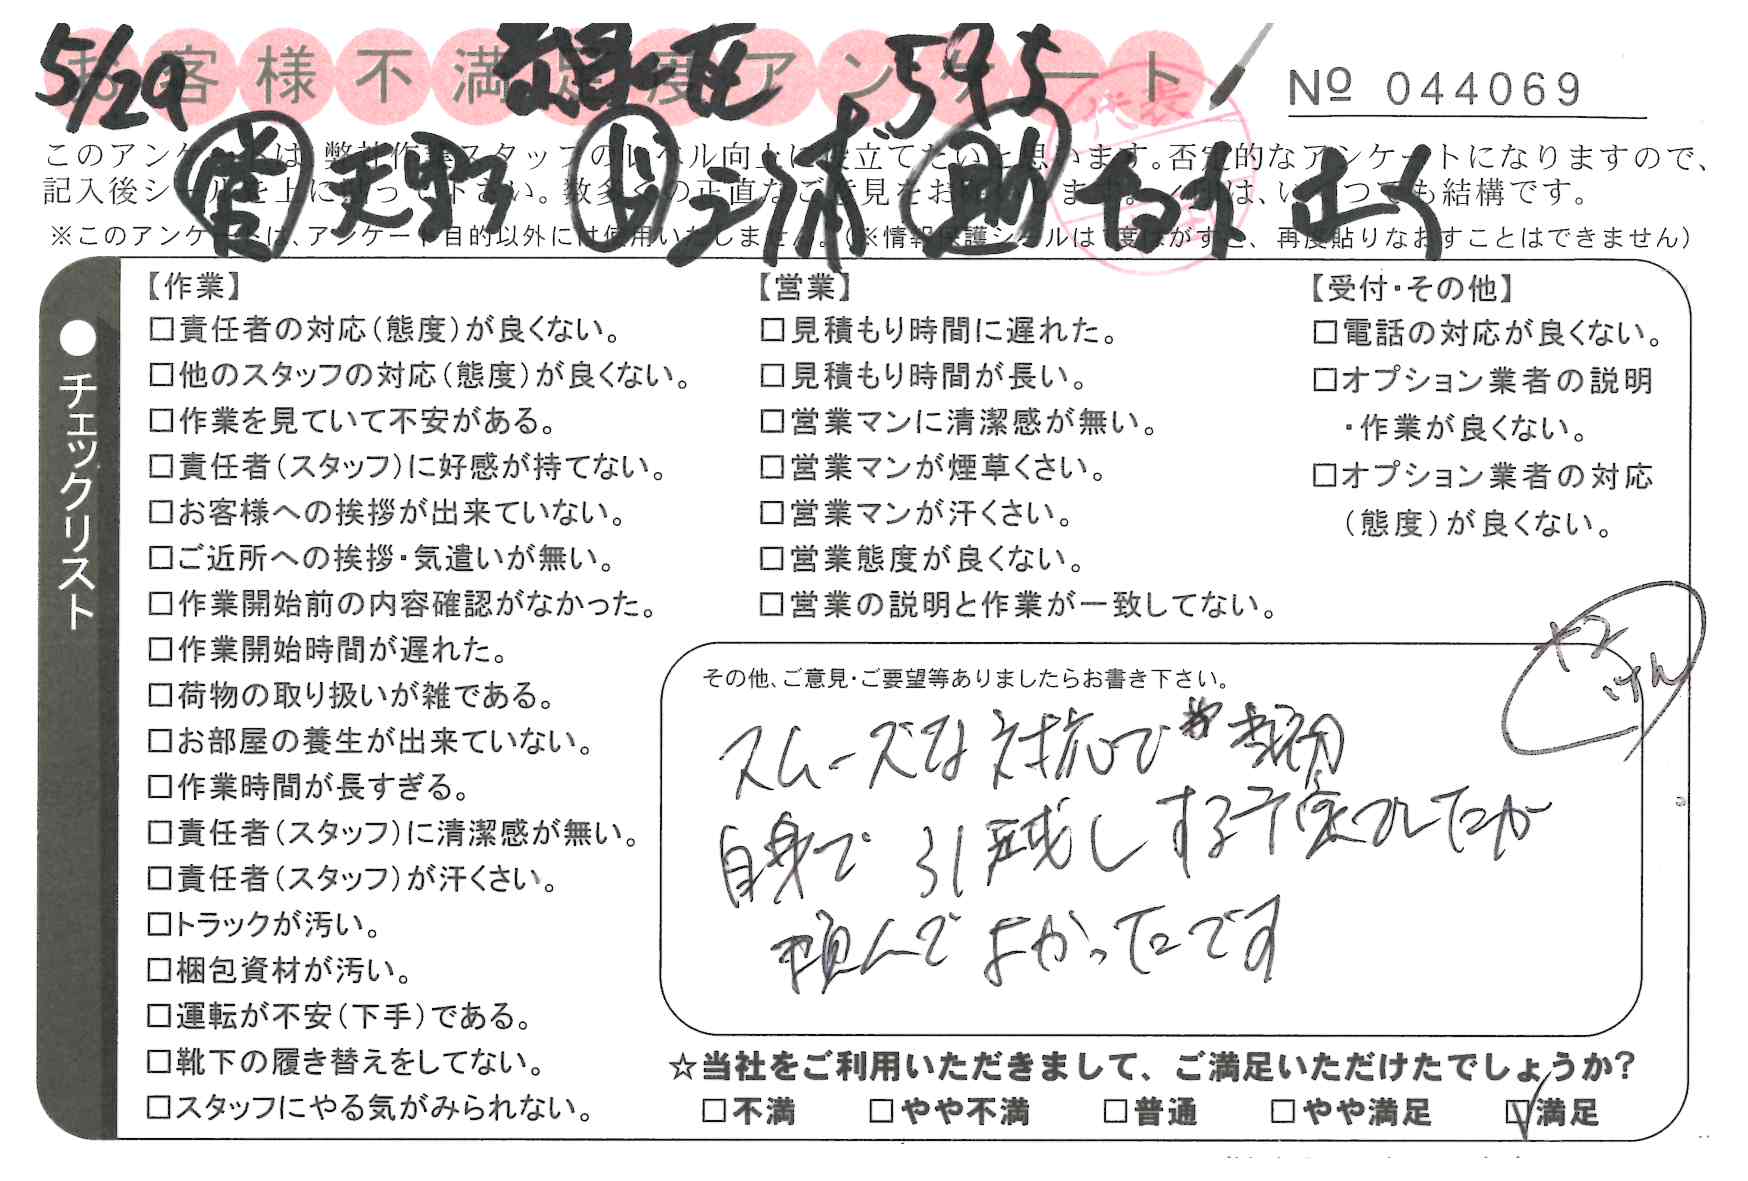 お客様不満足度アンケート
5/29
595
No 044069
代表
営 天野 ド 三浦 助
このアンケートは、弊社作業スタッフのレベル向上に役立てたいと思います。否定的なアンケートになりますので、
記入後シールを上に貼って下さい。数多くの正直なご意見をお願いします。
※このアンケートは、アンケート目的以外には使用いたしません。(※情報保護シールは1度はがすと、再度貼りなおすことはできません)
●チェックリスト
【作業】
□責任者の対応(態度)が良くない。
□他のスタッフの対応(態度)が良くない。
□作業を見ていて不安がある。
□責任者(スタッフ)に好感が持てない。
□お客様への挨拶が出来ていない。
□ご近所への挨拶・気遣いが無い。
□作業開始前の内容確認がなかった。
□作業開始時間が遅れた。
□荷物の取り扱いが雑である。
□お部屋の養生が出来ていない。
□作業時間が長すぎる。
□責任者(スタッフ)に清潔感が無い。
□責任者(スタッフ)が汗くさい。
□トラックが汚い。
□梱包資材が汚い。
□運転が不安(下手)である。
□靴下の履き替えをしてない。
□スタッフにやる気がみられない。
【営業】
□見積もり時間に遅れた。
□見積もり時間が長い。
□営業マンに清潔感が無い。
□営業マンが煙草くさい。
□営業マンが汗くさい。
□営業態度が良くない。
□営業の説明と作業が一致してない。
【受付・その他】
□電話の対応が良くない。
□オプション業者の説明
・作業が良くない。
□オプション業者の対応
(態度)が良くない。
その他、ご意見・ご要望等ありましたらお書き下さい。
スムーズな対応で 当初
自身で引越しする予定でしたが
頼んでよかったです
☆当社をご利用いただきまして、ご満足いただけたでしょうか?
□不満 □やや不満 □普通 □やや満足 ☑満足